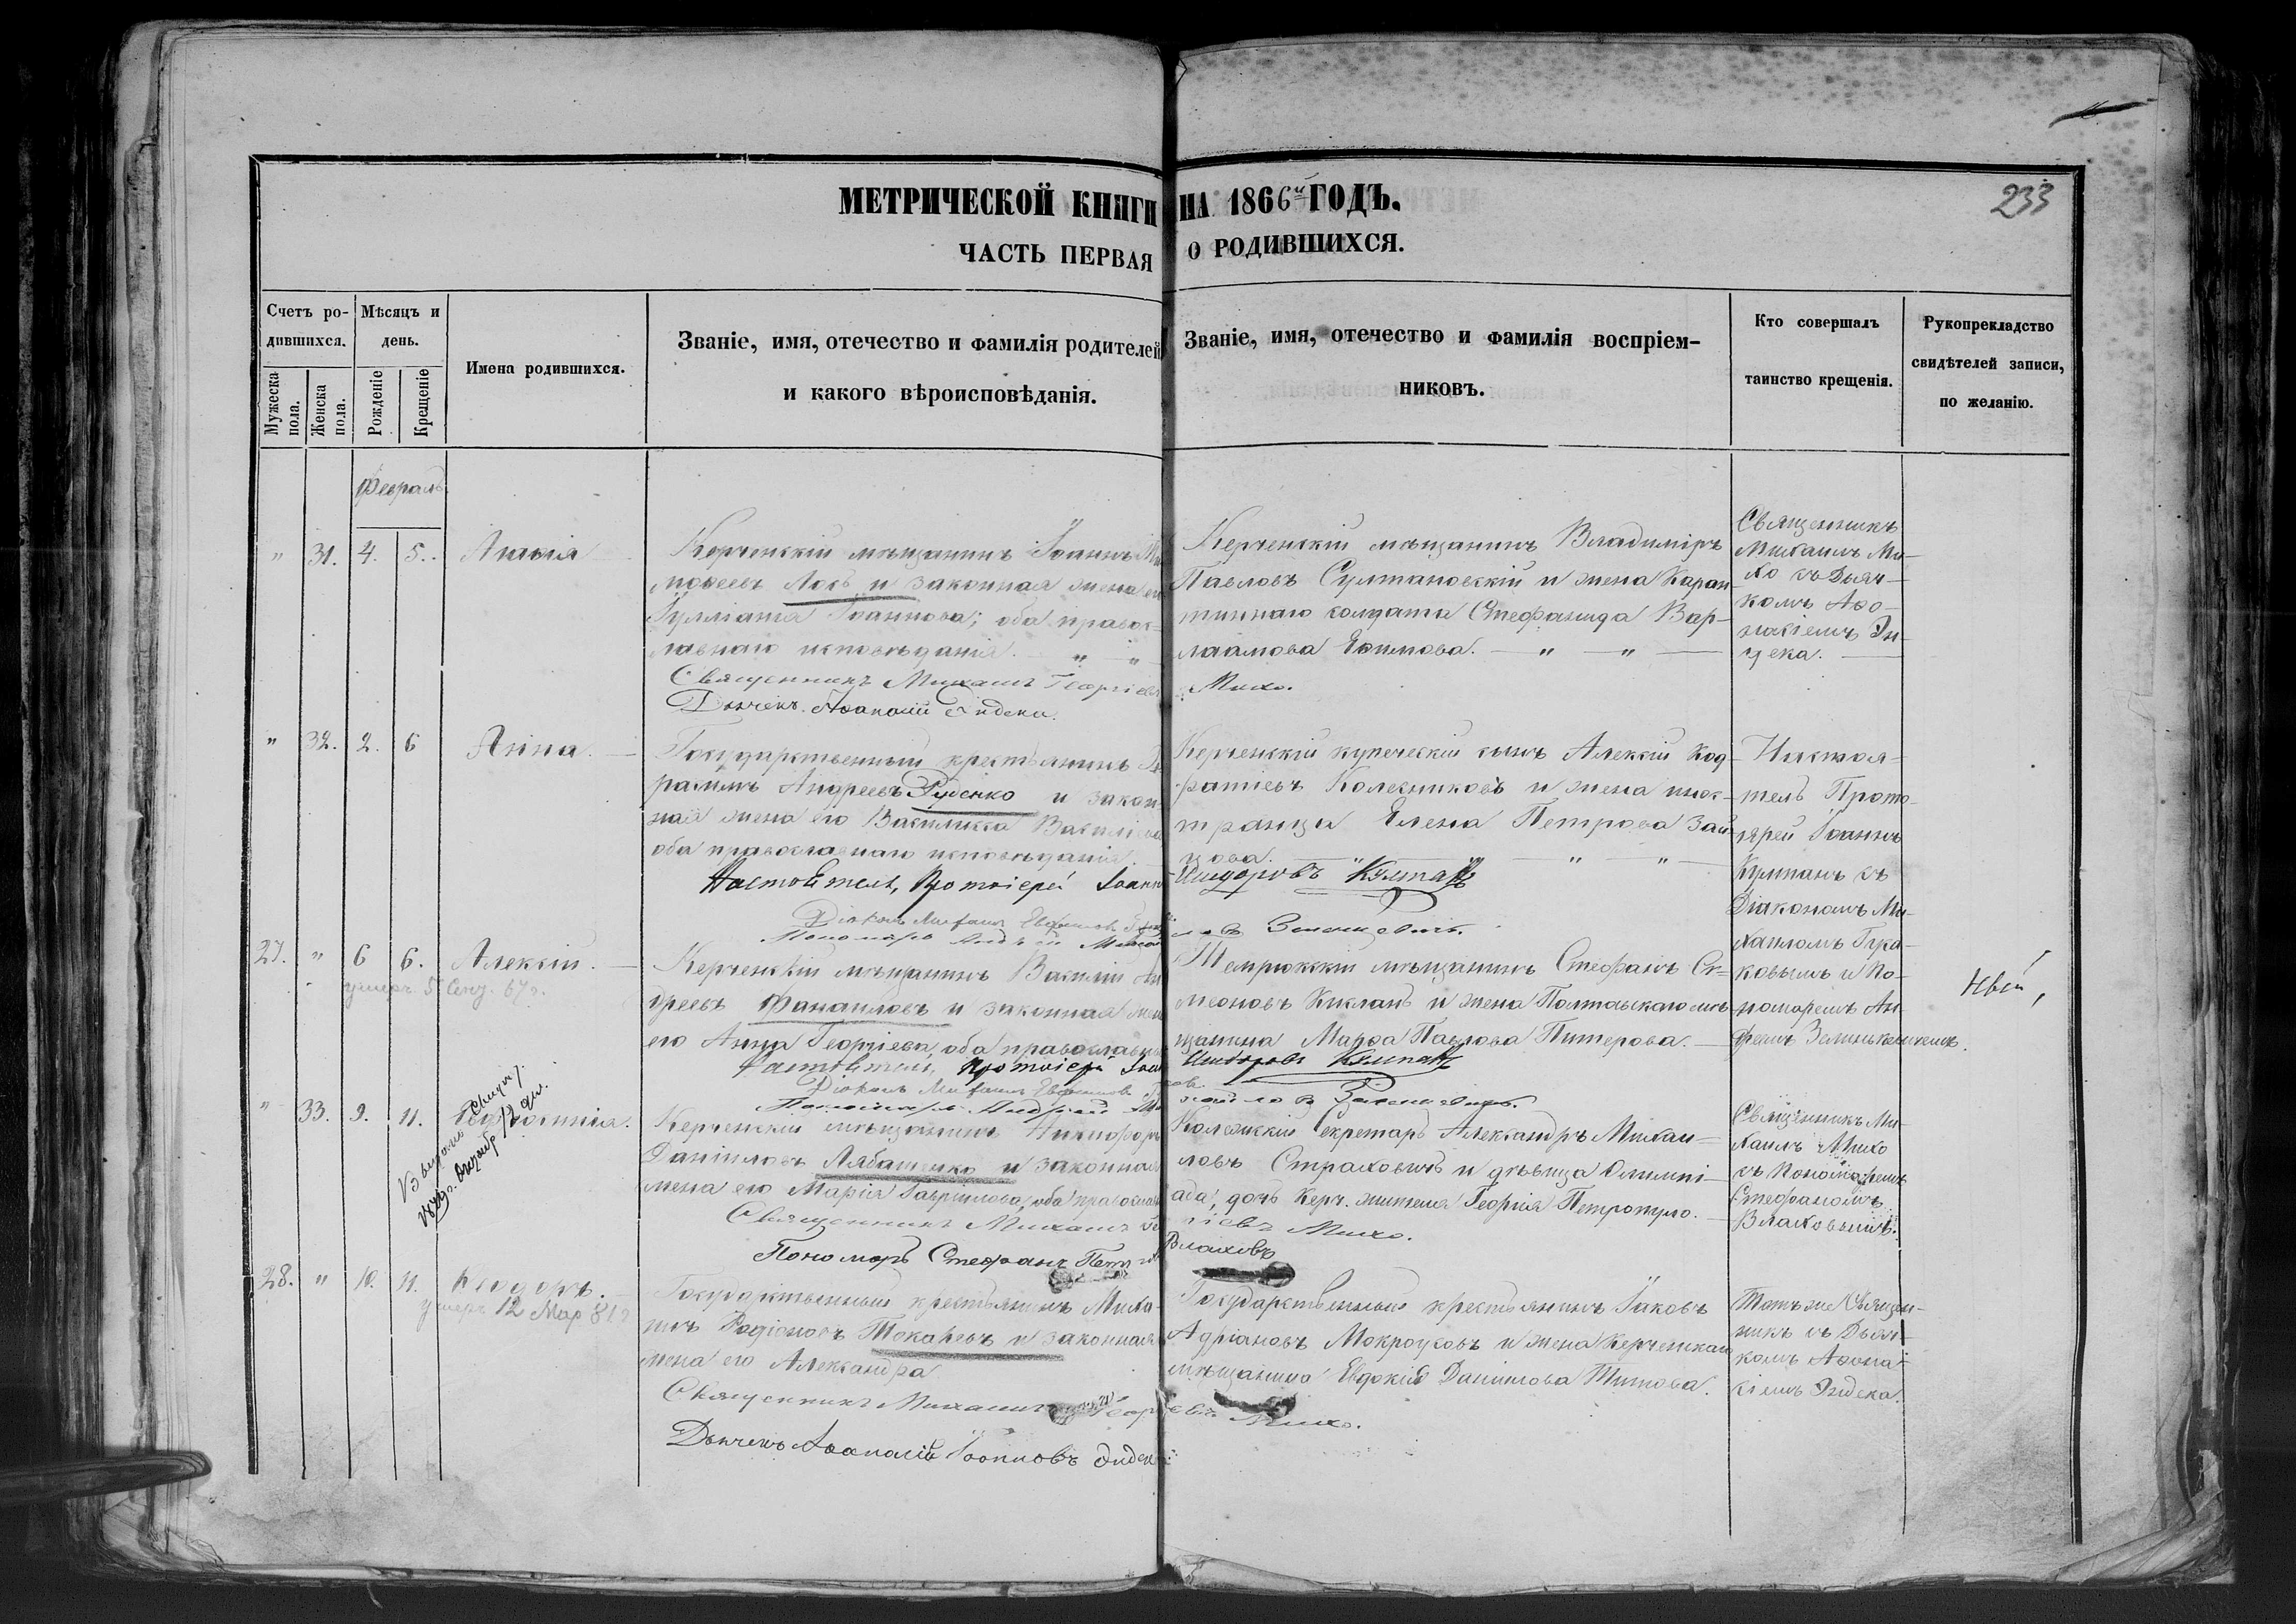 233
МЕТРИЧЕСКОЙ КНИГИ НА 1866й ГОДЪ.
ЧАСТЬ ПЕРВАЯ О РОДИВШИХСЯ.
Счетъ ро-
дившихся.
Мужеска пола.
Женска пола.
Мѣсяцъ и
день.
Рожденіе
Крещеніе
Имена родившихся.
Званіе, имя, отечество и фамилія родителей
и какого вѣроисповѣданія.
Званіе, имя, отечество и фамилія воспріем-
никовъ.
Кто совершалъ
таинство крещенія.
Рукоприкладство
свидѣтелей записи,
по желанію.
Февраль
" 31. 4. 5.
Керченскій мѣщанинъ Іоаннъ
Лось и законная жена его
Іоаннова; оба правос-
лавнаго исповѣданія. " "
Священникъ Михаилъ Георгіевъ Михо.
Дьячекъ Аѳанасій Эндека.
Керченскій мѣщанинъ Владиміръ
Павловъ Султановскій и жена Каран
тиннаго солдата Стефанида Вар-
лаамова Ефимова. " "
Священникъ
Михаилъ Ми-
хо съ Дьяч-
комъ Аѳа-
насіемъ Эн-
дека.
" 32. 2. 6 Анна.
Государственный крестьянинъ Ге
расимъ Андреевъ Руденко и закон
ная жена его Василисса Василіева
оба православнаго исповѣданія.
Настоятель, Протоіерей Іоаннъ Исидоровъ Кумпанъ
Діаконъ Михаилъ
Пономарь Андрей
Керченскій купеческій сынъ Алексій Код
ратіевъ Колесниковъ и жена инос-
транца Елена Петрова Зай
цова. " "
Настоя-
тель Прото-
іерей Іоаннъ
Кумпанъ съ
Діакономъ Ми-
хаиломъ Гира-
ковымъ и По-
номаремъ Ан-
дреемъ Зелинькевичемъ.
27. " 6 6. Алексій.
умеръ 5
Керченскій мѣщанинъ Василій Ан
дреевъ Фанаиловъ и законная жена
его Анна Георгіева, оба православн
Настоятель, Протоіерей Іоан Исидоровъ Кумпанъ
Діаконъ Михаилъ
Пономарь Андрей
Темрюкскій мѣщанинъ Стефанъ Си-
меоновъ Кикланъ и жена Полтавскаго мѣ
щанина Марѳа Павлова Питерова.
" 33. 9. 11.
Керченскій мѣщанинъ Никифоръ
Даніиловъ Лябашенко и законная
жена его Марія Гавриилова, оба православн
Священникъ Михаилъ Георгіевъ Михо.
Пономарь Стефанъ Петровъ Влаховъ
Колежскій Секретарь Александръ Михаи-
ловъ Страховичъ и дѣвица Олимпі-
ада, дочь Керч. жителя Георгія Петропуло.
Священникъ Ми-
хаилъ Михо
съ Пономаремъ
Стефаномъ
Влаховымъ.
28. " 10. 11. Ѳеодоръ.
умеръ 12 Мар
Государственный крестьянинъ Миха-
илъ Родіоновъ Токаревъ и законная
жена его Александра
Священникъ Михаилъ Георгіевъ Михо.
Дьячекъ Аѳанасій Іоанновъ Эндека
Государственный крестьянинъ Іаковъ
Адріановъ Мокроусовъ и жена Керченскаго
мѣщанина Евдокія Даніилова Титова.
Тотъ же Священ-
никъ съ Дьяч-
комъ Аѳана-
сіемъ Эндека.